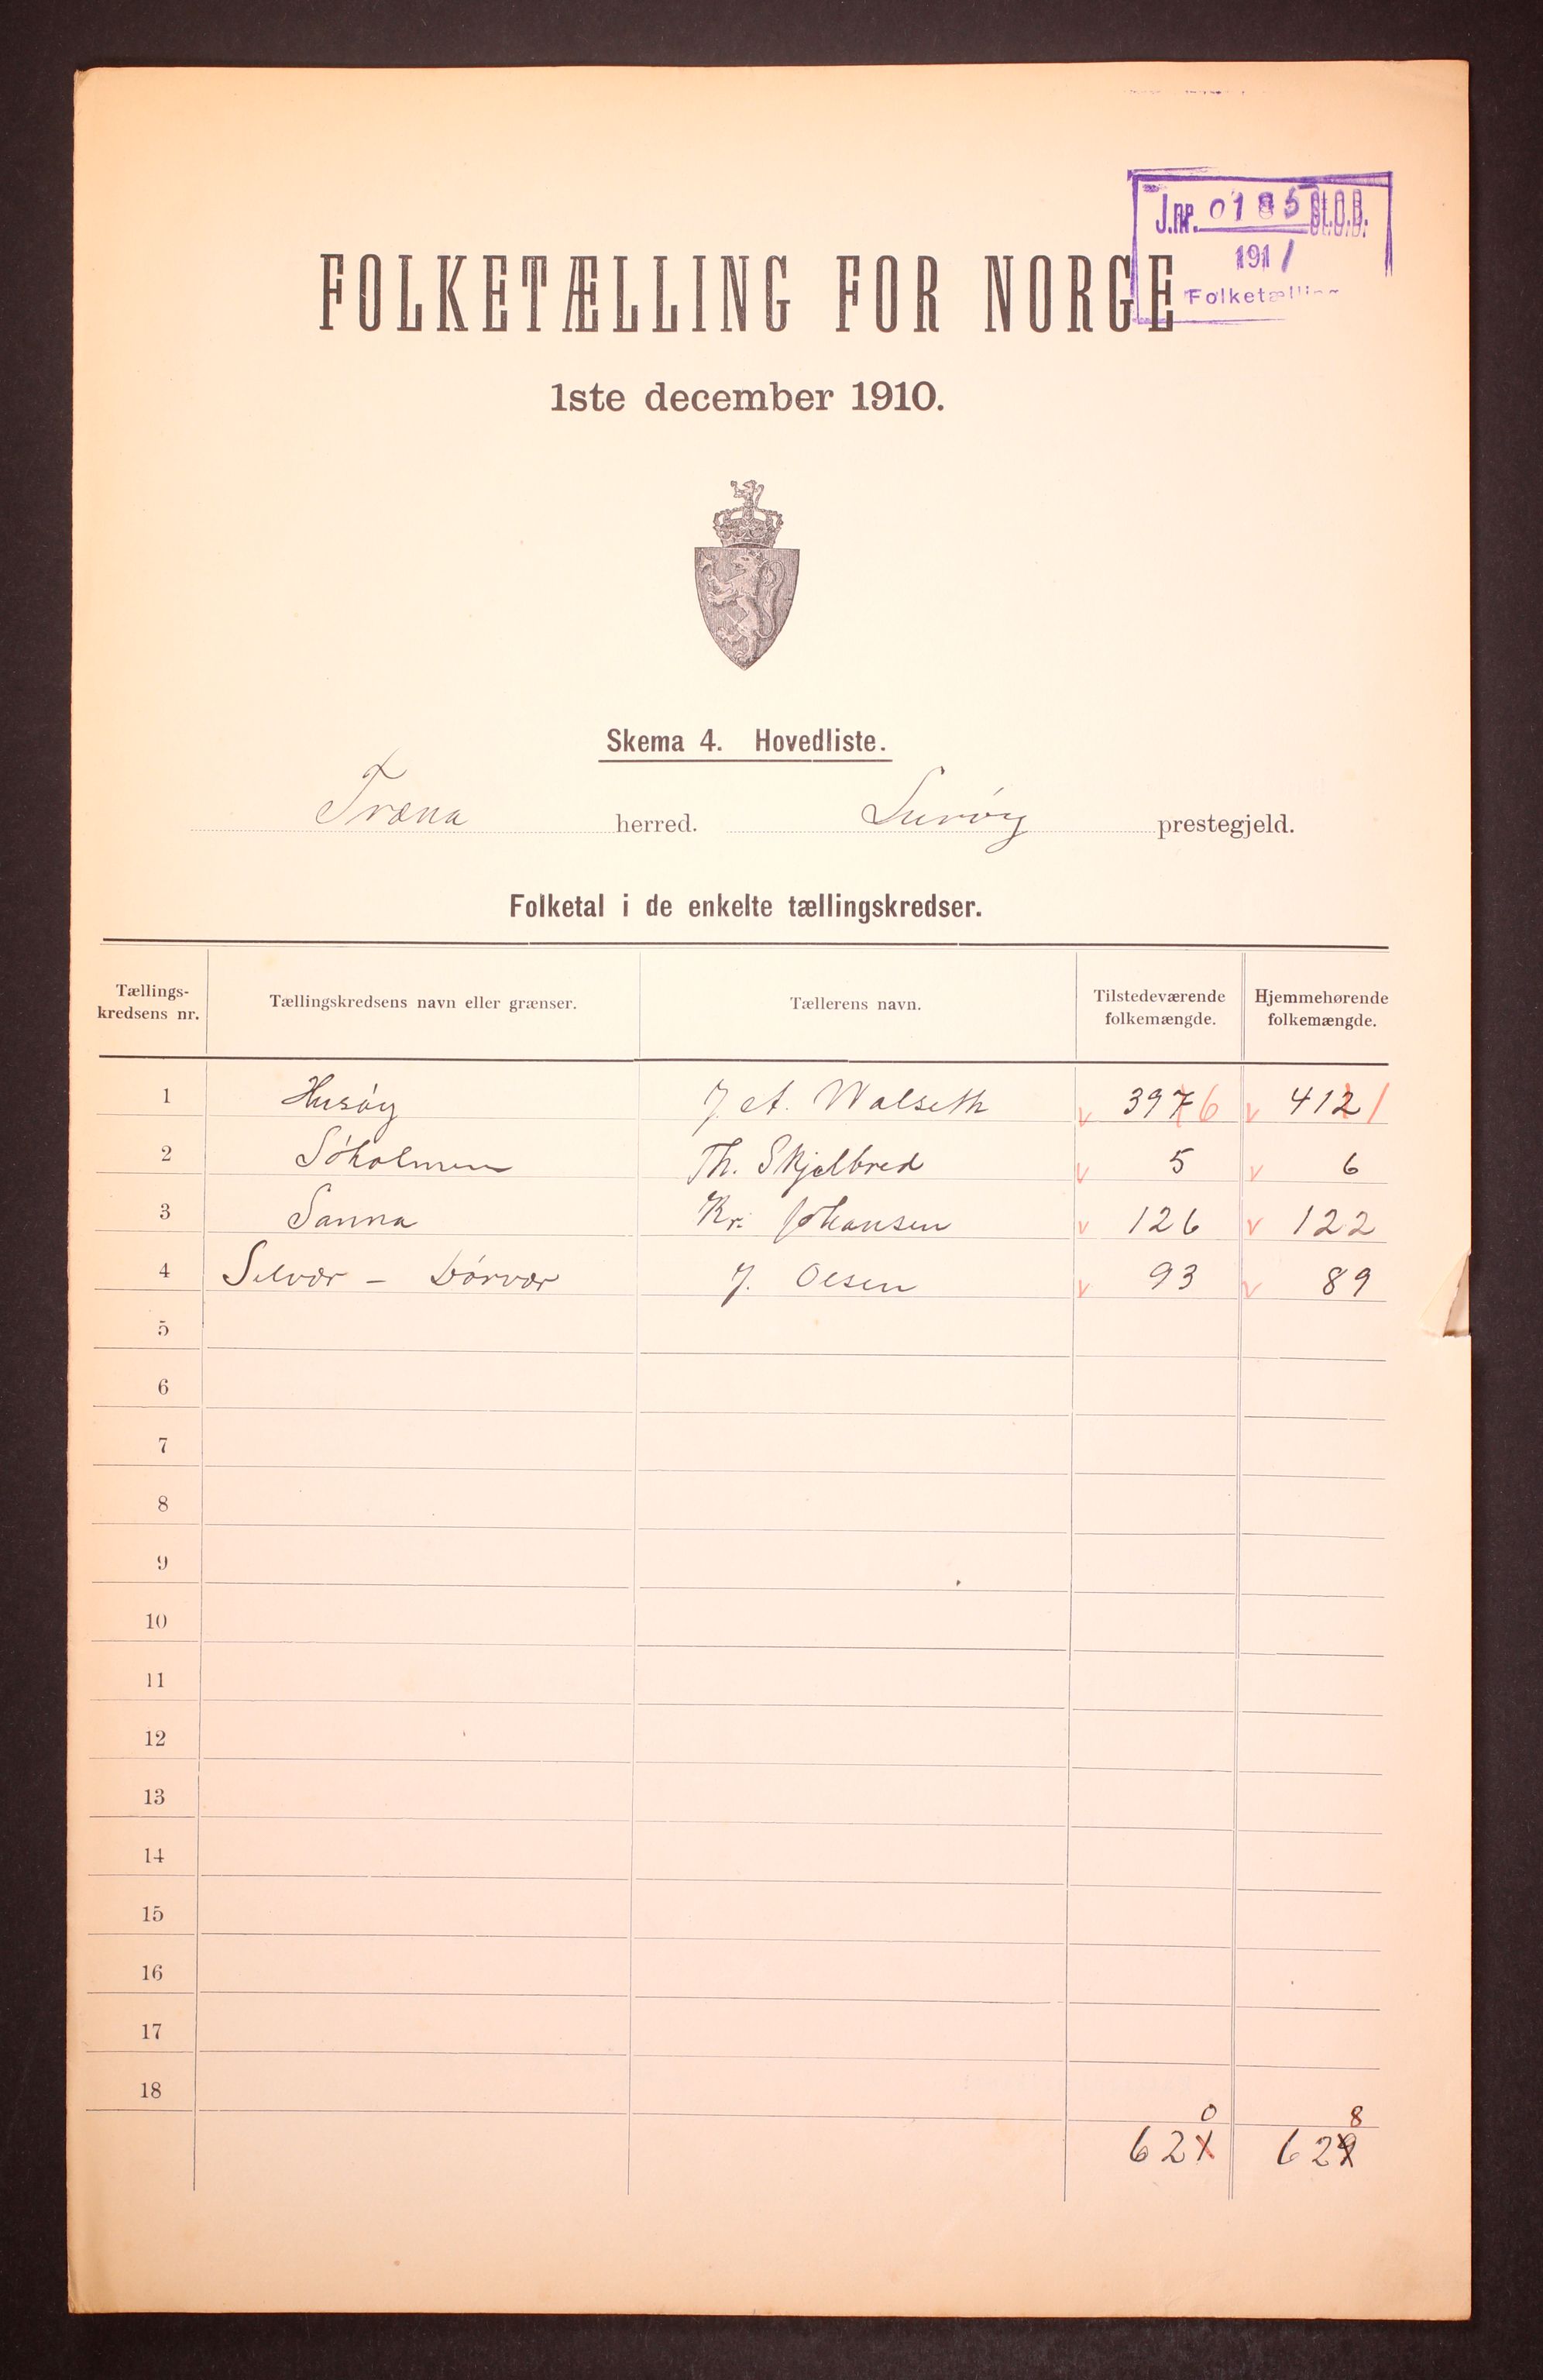 J.nr. 0185 St.O.B.
1911
Folketælling
FOLKETÆLLING FOR NORGE
1ste december 1910.
Skema 4. Hovedliste.
Træna herred. Lurøy prestegjeld.
Folketal i de enkelte tællingskredser.
Tællings-kredsens nr. Tællingskredsens navn eller grænser. Tællerens navn. Tilstedeværende folkemængde. Hjemmehørende folkemængde.
1 Husøy J. A. Walseth v 397 6 v 412 1
2 Søholmen Th. Skjelbred v 5 v 6
3 Sanna Kr. Johansen v 126 v 122
4 Selvær - Dørvær J. Olsen v 93 v 89
5
6
7
8
9
10
11
12
13
14
15
16
17
18
0 8
621 629